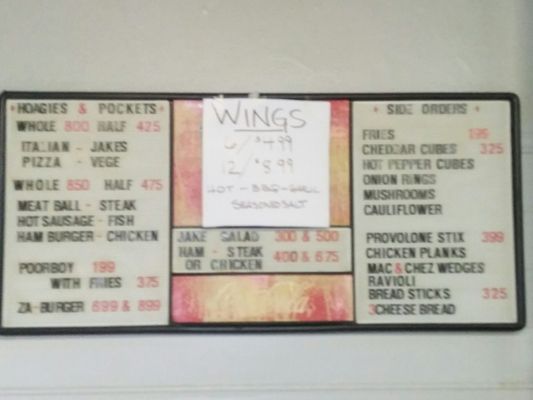 HOAGIES & POCKETS
WHOLE 800 HALF 425
ITALIAN - JAKES
PIZZA - VEGE
WHOLE 850 HALF 475
MEAT BALL - STEAK
HOT SAUSAGE - FISH
HAM BURGER - CHICKEN
POORBOY 199
WITH FRIES 375
ZA-BURGER 699 & 899
WINGS
6/$4.99
12/$8.99
HOT - BBQ - GARLIC
SEASONED SALT
JAKE SALAD 300 & 500
HAM - STEAK
OR CHICKEN 400 & 675
Coca-Cola
SIDE ORDERS
FRIES 195
CHEDDAR CUBES 325
HOT PEPPER CUBES
ONION RINGS
MUSHROOMS
CAULIFLOWER
PROVOLONE STIX 399
CHICKEN PLANKS
MAC & CHEZ WEDGES
RAVIOLI
BREAD STICKS 325
3CHEESE BREAD